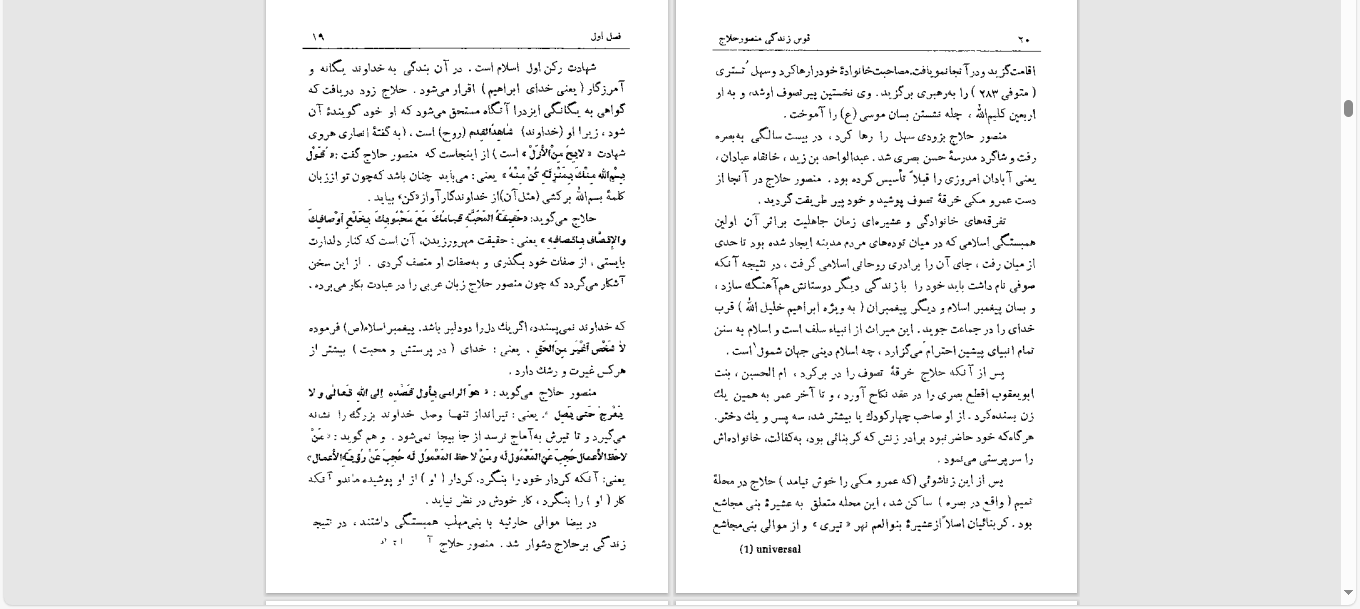 فصل اول ۱۹
شهادت رکن اول اسلام است . در آن بندگی به خداوند یگانه و
آمرزگار ( یعنی خدای ابراهیم ) اقرار می‌شود . حلاج زود دریافت که
گواهی به یگانگی ایزدرا آنگاه مستحق می‌شود که او خود گویندهٔ آن
شود ، زیرا او (خداوند) شاهدُالقِدم (روح) است . (به گفتهٔ انصاری هروی
شهادت « لایصحُّ مِنَ‌الأزَل » است ) از اینجاست که منصور حلاج گفت :
بِسْمِ‌الله مِنْكَ بِمَنْزِلَةِ كُنْ مِنْهُ » یعنی : می‌باید چنان باشد که‌چون تو اززبان
کلمهٔ بسم‌الله برکشی (مثل آن)از خداوندگارآواز«کن» بیاید .
حلاج می‌گوید: «حَقیقَةُ المَحَبَّةِ قیامُكَ مَعَ مَحْبُوبِكَ بِخَلْعِ أوْصافِكَ
والإتِّصاف باتصافه » یعنی : حقیقت مهرورزیدن، آن است که کنار دلدارت
بایستی ، از صفات خود بگذری و به‌صفات او متصف گردی . از این سخن
آشکار می‌گردد که چون منصور حلاج زبان عربی را در عبادت بکار می‌برده .
که خداوند نمی‌پسندد، اگریك دل‌را دودلبر باشد. پیغمبر اسلام(ص) فرموده
لا شَخْصَ أغْیَرُ مِنَ‌الحَقِّ . یعنی : خدای ( در پرستش و محبت ) بیشتر از
هرکس غیرت و رشك دارد .
منصور حلاج می‌گوید : « هوَ الرامی بِأول قَصْده إلی الله تَعالی و لا
یَعْرُجُ حَتّی یَصِل » . یعنی : تیرانداز تنها وصل خداوند بزرگ را نشانه
می‌گیرد و تا تیرش به‌آماج نرسد از جا بیجا نمی‌شود . و هم گوید : « مَنْ
لاحَظَ الأعمال حُجِبَ عَنِ المَعْمُولِ لَه وَمَنْ لاحظ المَعْمُول لَه حُجِبَ عَنْ رُؤیَةِ الأعمال»
یعنی: آنکه کردار خود را بنگرد. کردار ( او ) از او پوشیده ماندو آنکه
کار ( او ) را بنگرد ، کار خودش در نظر نیاید .
در بیضا موالی حارثیه با بنی‌مهلب همبستگی داشتند ، در نتیجه
زندگی برحلاج دشوار شد . منصور حلاج
۲۰ قوس زندگی منصورحلاج
اقامت گزید ودرآنجا نمویافت.مصاحبت خانوادهٔ خودرارهاکرد وسهل تُستری
( متوفی ۲۸۳ ) را به‌رهبری برگزید . وی نخستین پیرتصوف اوشد، و به او
اربعین کلیم‌الله ، چله نشستن بسان موسی (ع) را آموخت .
منصور حلاج بزودی سهل را رها کرد ، در بیست سالگی به‌بصره
رفت و شاگرد مدرسهٔ حسن بصری شد . عبدالواحد بن زید ، خانقاه عبادان ،
یعنی آبادان امروزی را قبلاً تأسیس کرده بود . منصور حلاج در آنجا از
دست عمرو مکی خرقهٔ تصوف پوشید و خود پیر طریقت گردید .
تفرقه‌های خانوادگی و عشیره‌ای زمان جاهلیت براثر آن اولین
همبستگی اسلامی که در میان توده‌های مردم مدینه ایجاد شده بود تاحدی
از میان رفت ، جای آن را برادری روحانی اسلامی گرفت ، در نتیجه آنکه
صوفی نام داشت باید خود را با زندگی دیگر دوستانش هم‌آهنگ سازد ،
و بسان پیغمبر اسلام و دیگر پیغمبران ( به ویژه ابراهیم خلیل الله ) قرب
خدای را در جماعت جوید . این میراث از انبیاء سلف است و اسلام به سنن
تمام انبیای پیشین احترام می‌گزارد ، چه اسلام دینی جهان شمول¹ است .
پس از آنکه حلاج خرقهٔ تصوف را در برکرد ، ام الحسین ، بنت
ابویعقوب اقطع بصری را در عقد نکاح آورد ، و تا آخر عمر به همین یك
زن بسنده‌کرد . از او صاحب چهارکودك یا بیشتر شد، سه پسر و یك دختر.
هرگاه‌که خود حاضرنبود برادر زنش که کربنائی بود، به‌کفالت، خانواده‌اش
را سرپرستی می‌نمود .
پس از این زناشوئی (که عمرو مکی را خوش نیامد ) حلاج در محلهٔ
تمیم ( واقع در بصره ) ساکن شد ، این محله متعلق به عشیرهٔ بنی مجاشع
بود . کربنائیان اصلاً ازعشیرهٔ بنوالعم نهر « تیری » و از موالی بنی‌مجاشع
(1) universal